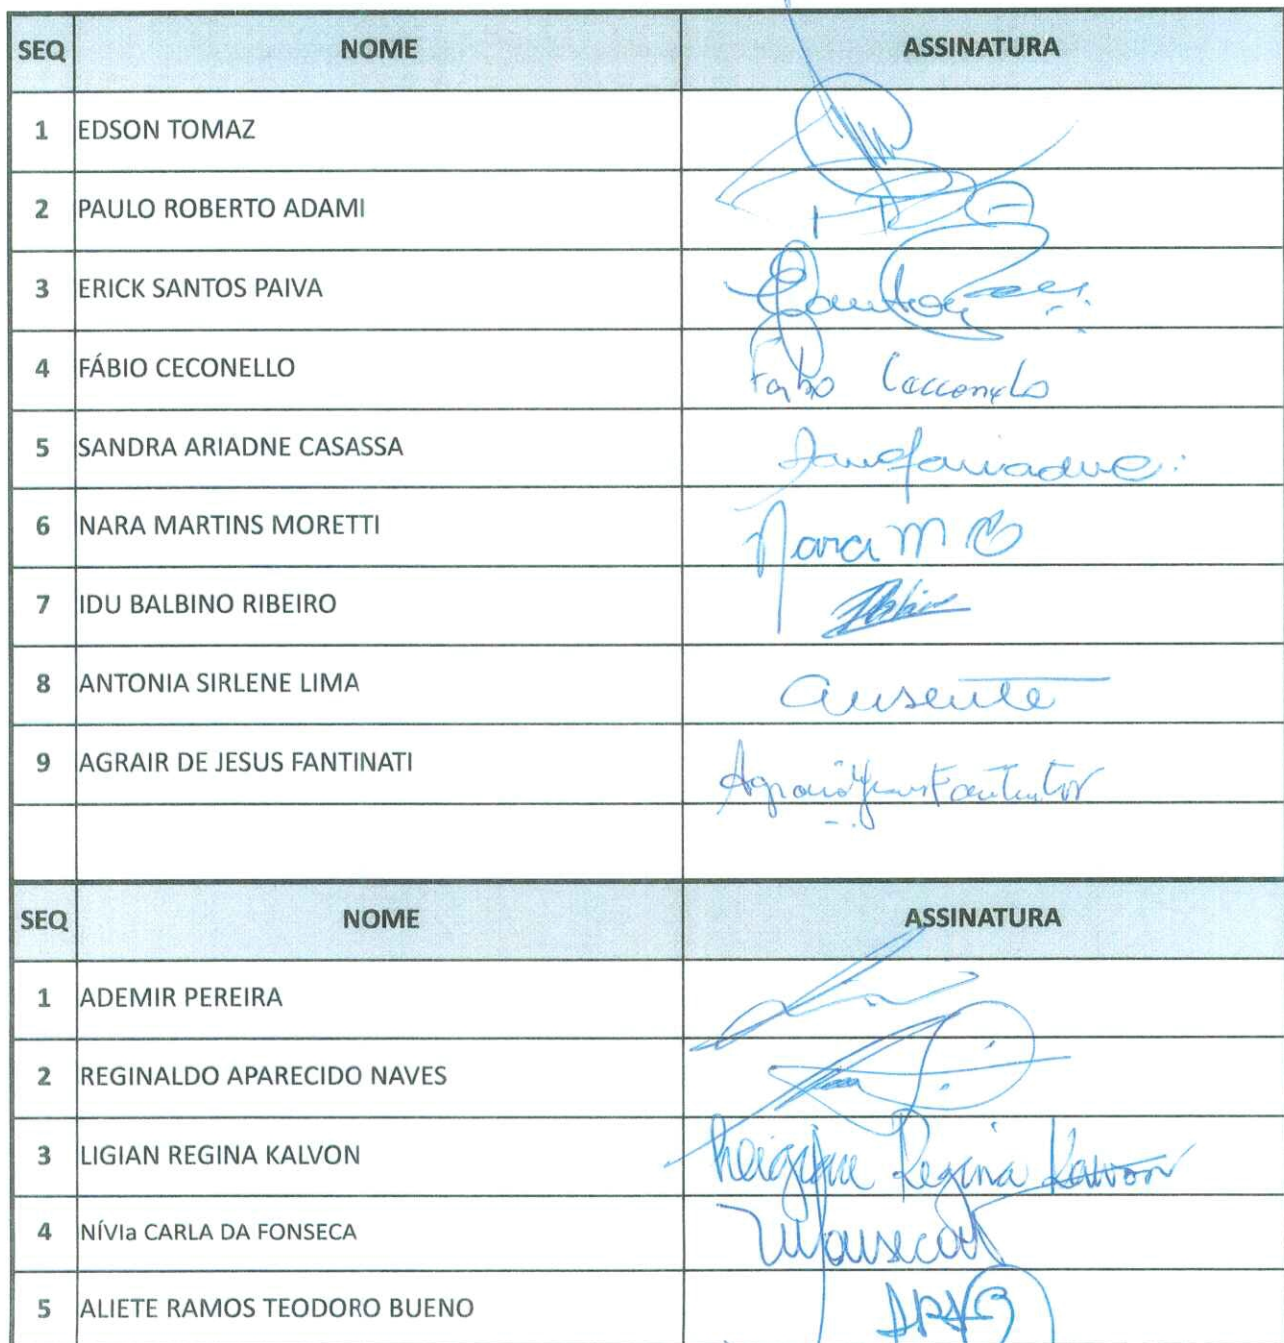 SEQ NOME ASSINATURA
1 EDSON TOMAZ
2 PAULO ROBERTO ADAMI
3 ERICK SANTOS PAIVA
4 FÁBIO CECONELLO Fabio
5 SANDRA ARIADNE CASASSA
6 NARA MARTINS MORETTI Nara M
7 IDU BALBINO RIBEIRO
8 ANTONIA SIRLENE LIMA ausente
9 AGRAIR DE JESUS FANTINATI
SEQ NOME ASSINATURA
1 ADEMIR PEREIRA
2 REGINALDO APARECIDO NAVES
3 LIGIAN REGINA KALVON Regina Kalvon
4 NÍVIa CARLA DA FONSECA
5 ALIETE RAMOS TEODORO BUENO